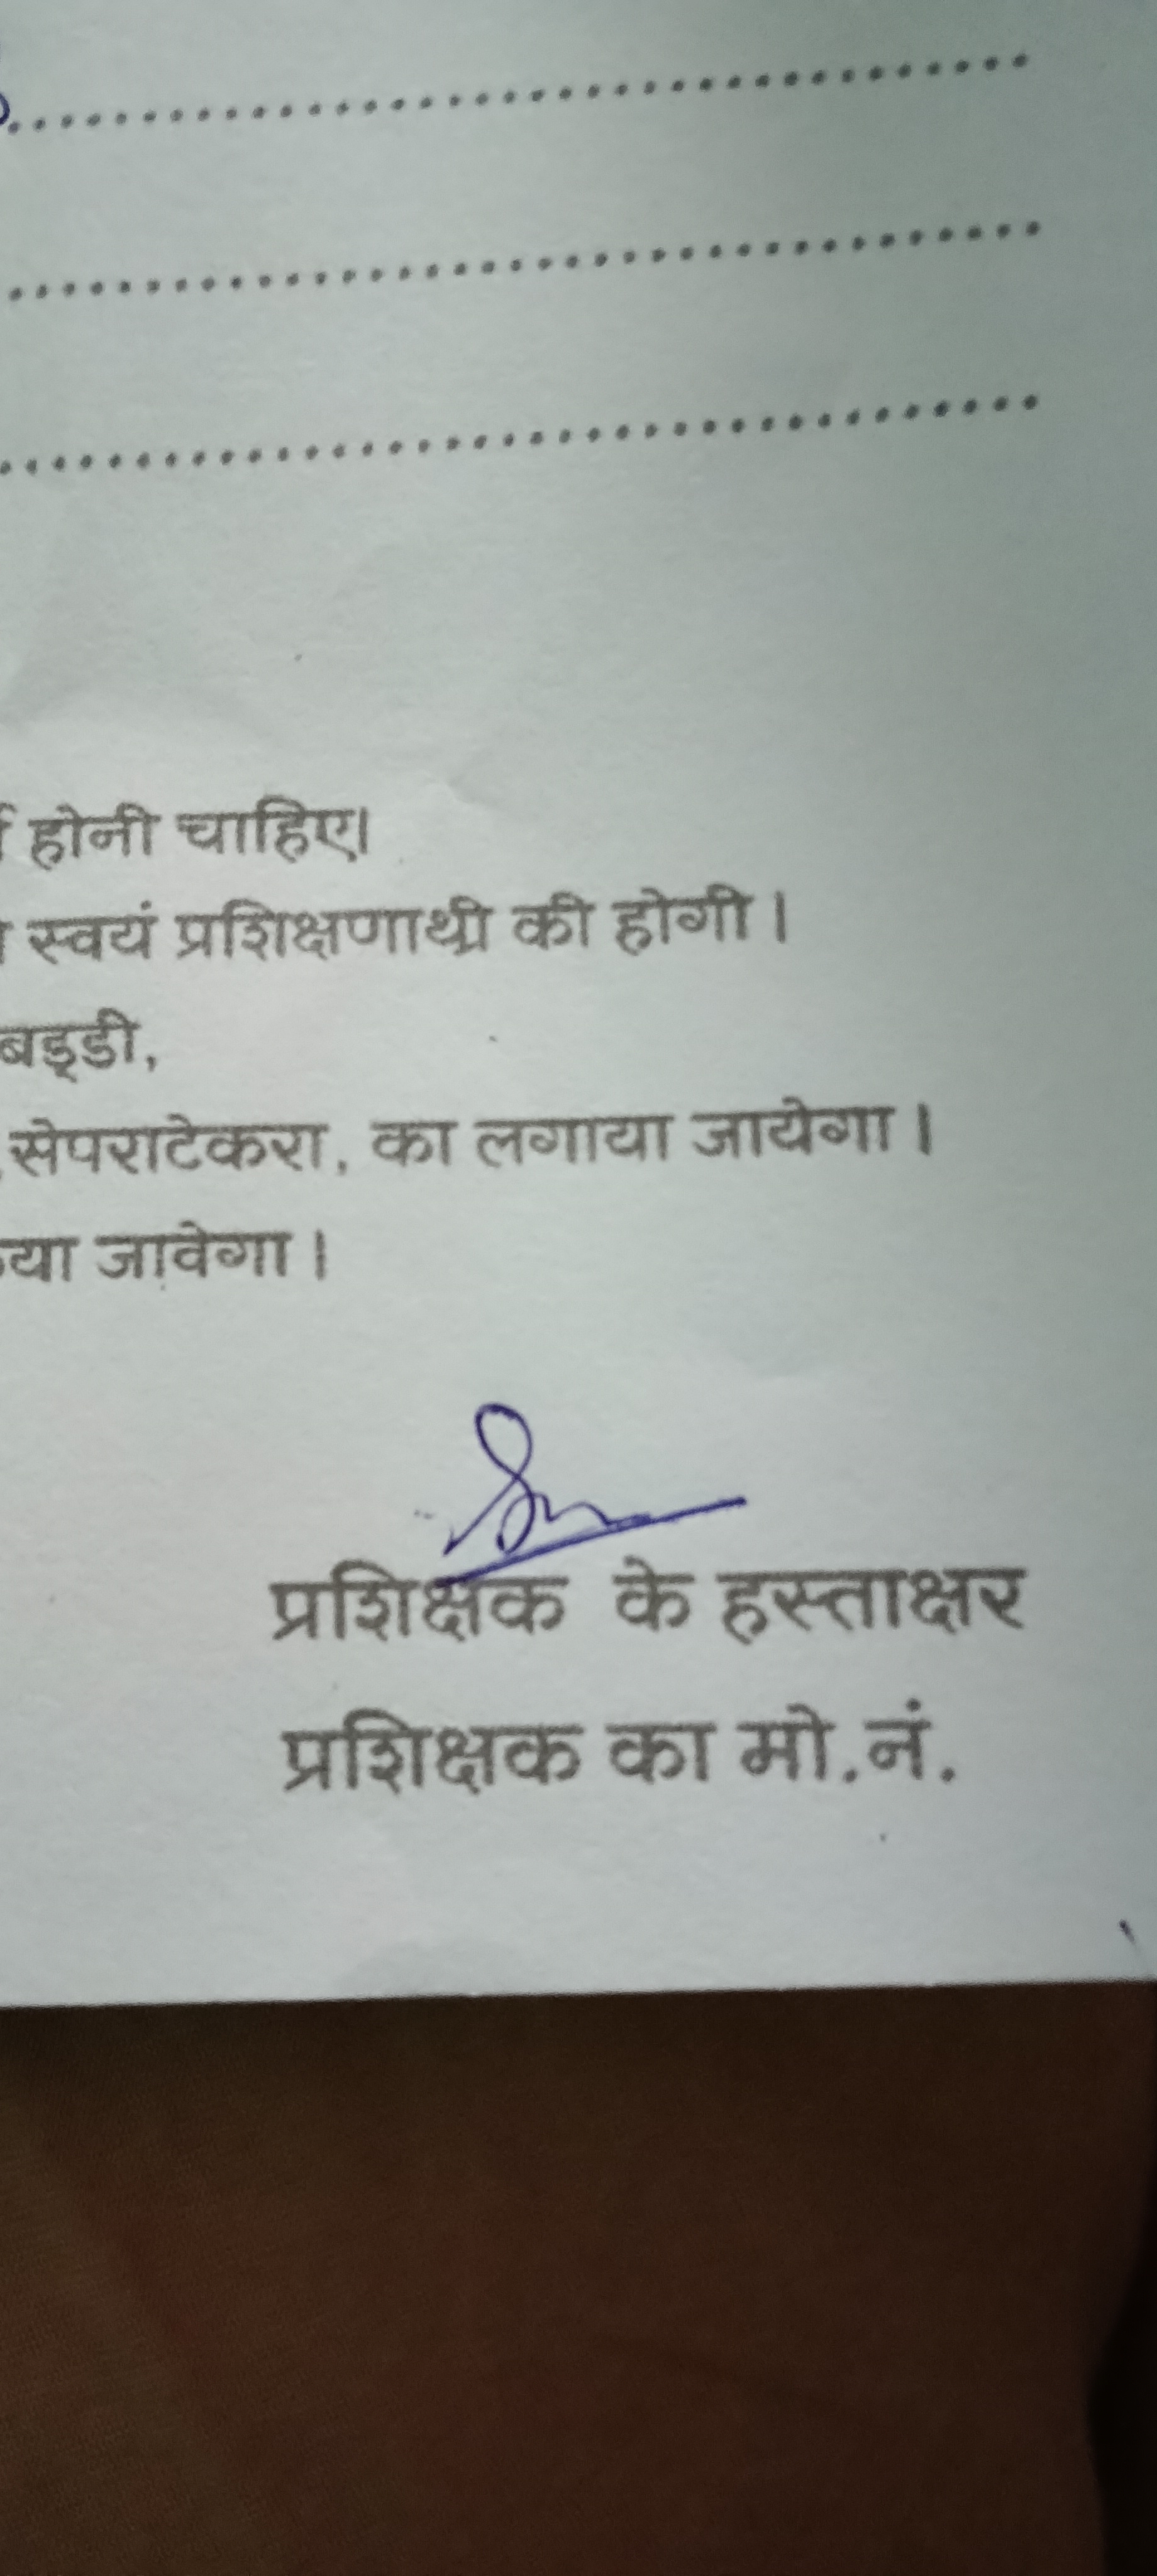 होनी चाहिए।
स्वयं प्रशिक्षणार्थी की होगी ।
सेपराटेकरा, का लगाया जायेगा ।
जावेगा ।
प्रशिक्षक के हस्ताक्षर
प्रशिक्षक का मो.नं.